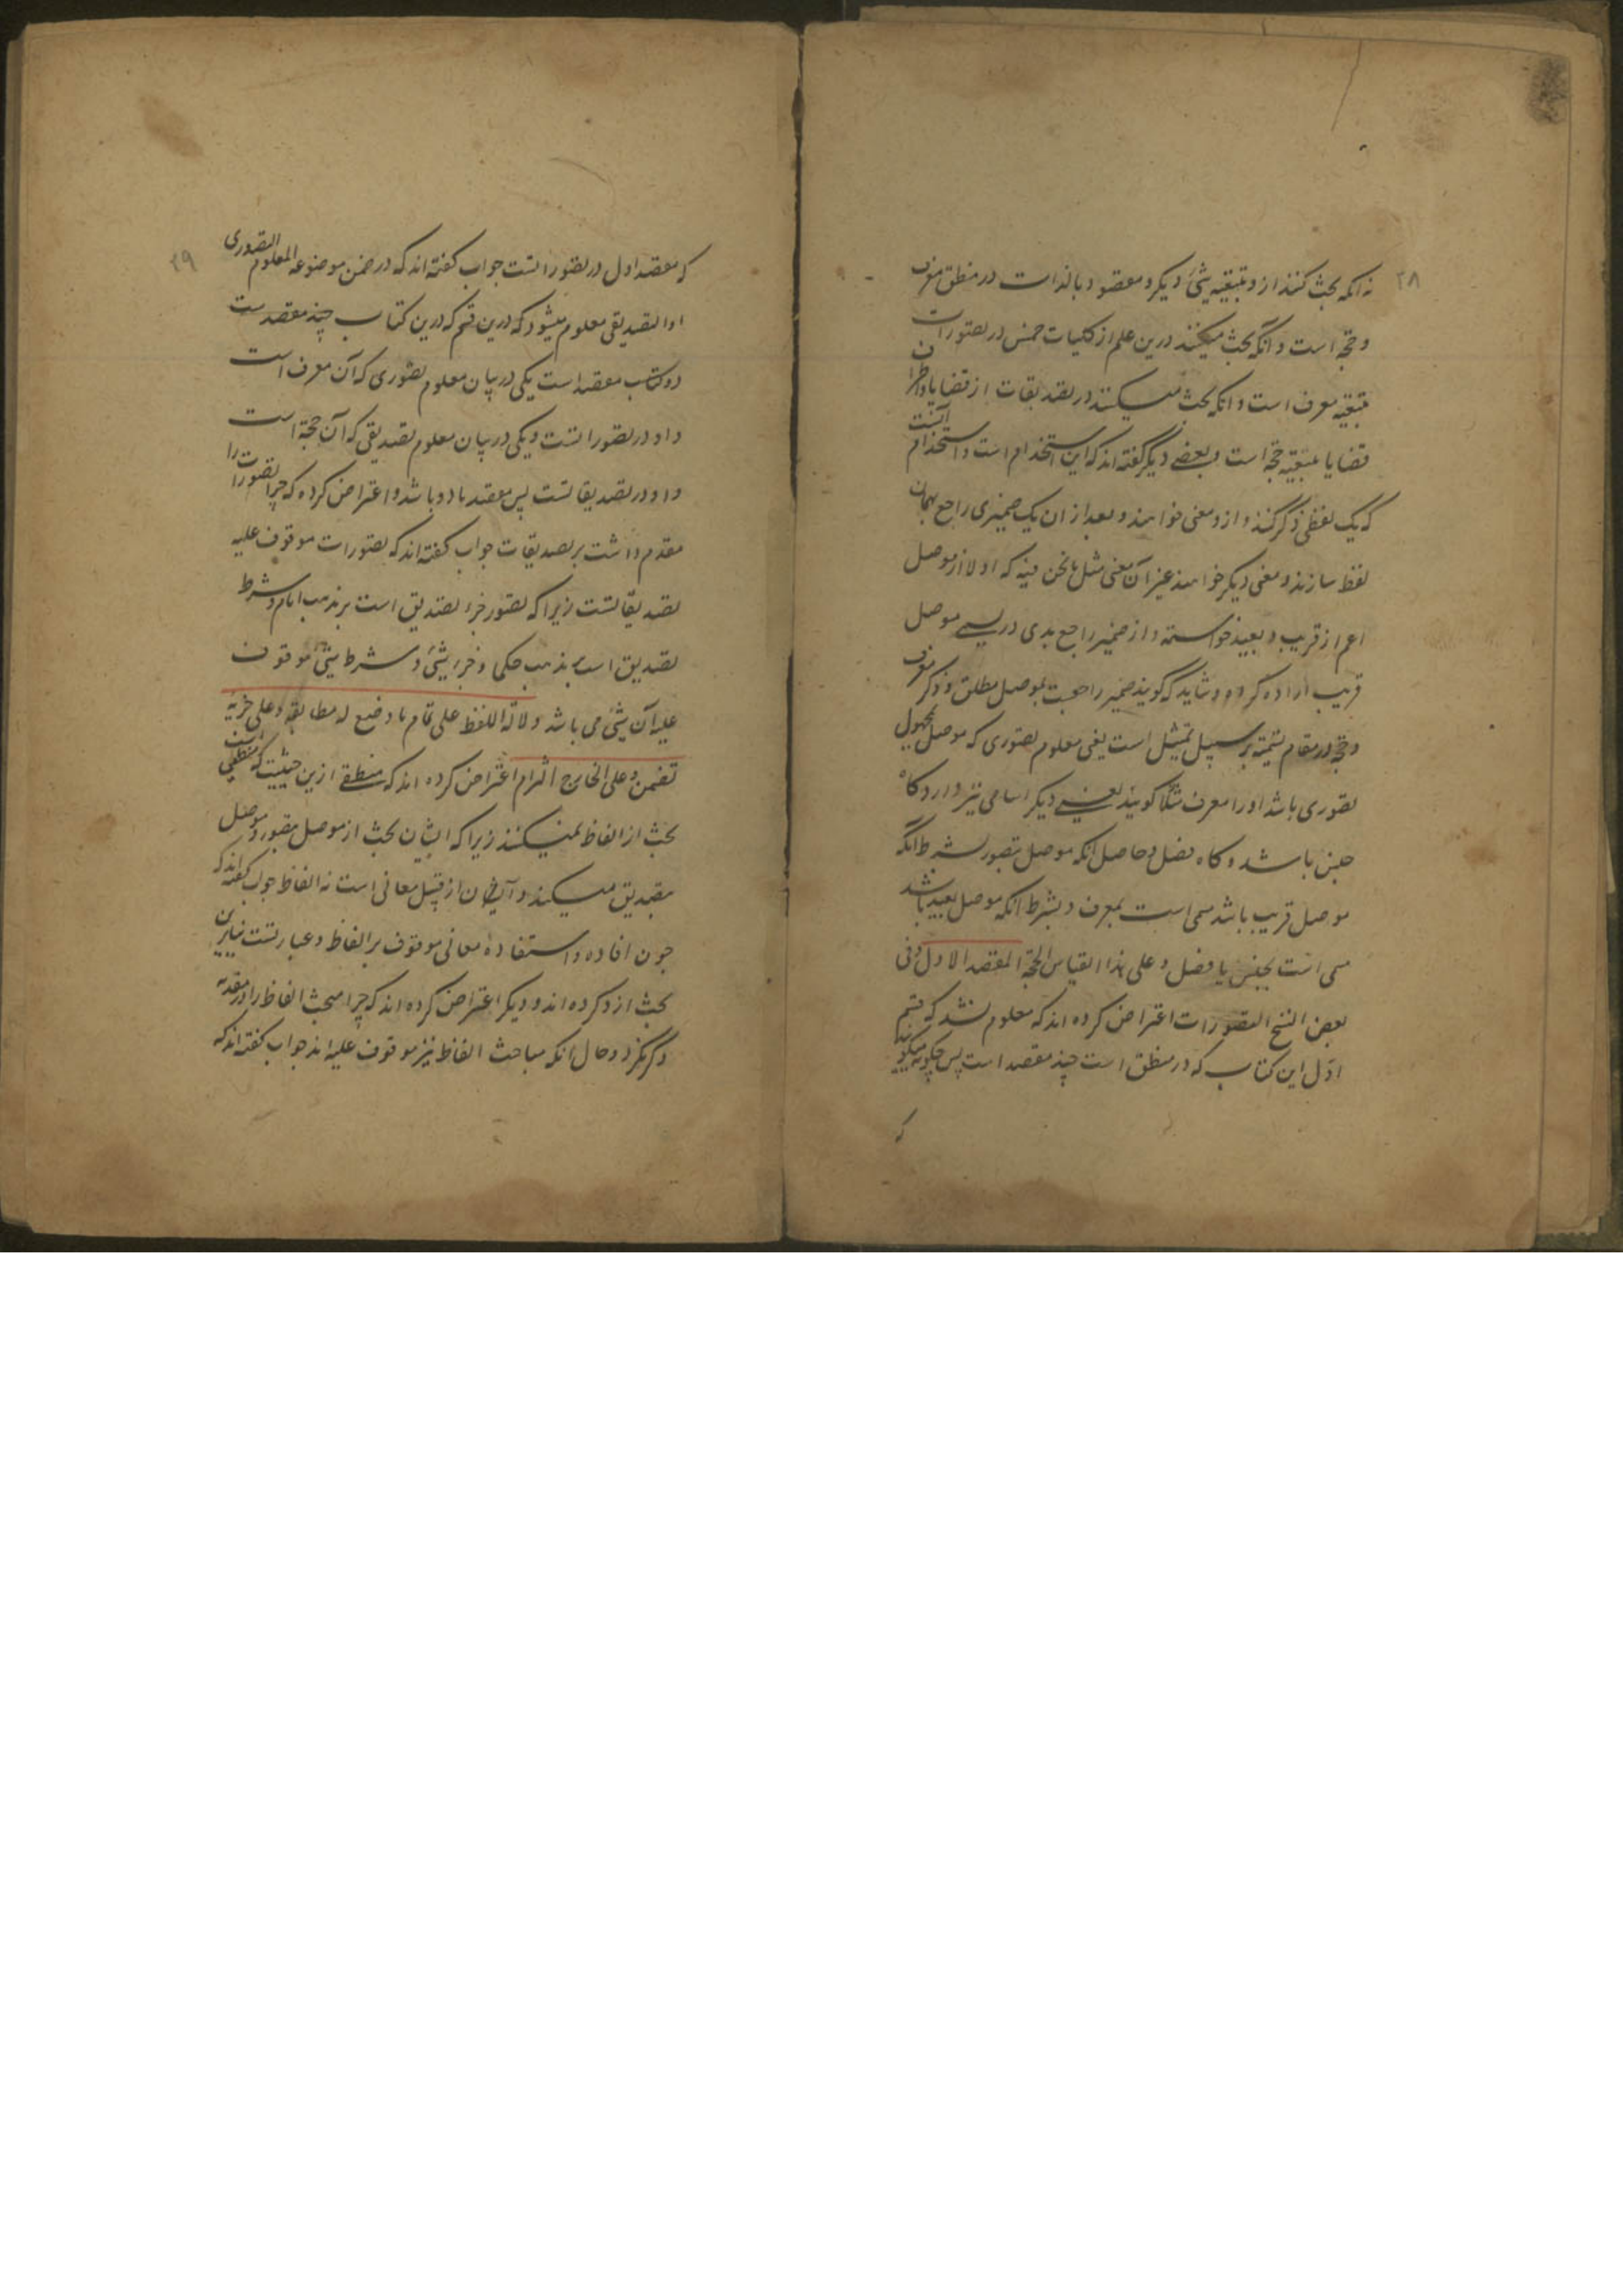 ۲۸
نه آنکه بحث کنند ازو بتبعیه شئ دیگر و مقصود بالذات در منطق معرف
و حجة است و آنکه بحث میکنند درین علم از کلیات خمس در تصورات
بتبعیه معرف است و آنکه بحث میکنند در تصدیقات از قضایا و اطراف
قضایا بتبعیة حجة است و بعضی دیگر گفته اند که این استخدام است و استخدام آنست
که یک لفظی ذکر کنند و ازو معنی خواهند و بعد از ان یک ضمیری راجع بهمان
لفظ سازند و معنی دیگر خواهند غیر آن معنی مثل ما نحن فیه که اولا از موصل
اعم از قریب و بعید خواسته و از ضمیر راجع بدی در یسمی موصل
قریب اراده کرده و شاید که گویند ضمیر راجعست بموصل مطلق و ذکر معرف
و حجة در مقام تسمیه بر سبیل تمثیل است یعنی معلوم تصوری که موصل بمجهول
تصوری باشد او را معرف مثلا گویند یعنی دیگر اسامی نیز دارد گاه
جنس باشد و گاه فصل و حاصل آنکه موصل بتصور بشرط آنکه
موصل قریب باشد مسمی است بمعرف و بشرط آنکه موصل بعید باشد
مسمی است بجنس یا فصل و علی هذا القیاس الحجة المقصد الاول و فی
بعض النسخ التصورات اعتراض کرده اند که معلوم نشد که قسم
اول این کتاب که در منطق است چند مقصد است پس چگونه میگوید
که
۲۹
که مقصد اول در تصوراتست جواب گفته اند که در ضمن موضوعه المعلوم التصوری
او التصدیقی معلوم میشود که درین قسم که درین کتاب چند مقصد است
دو کتاب مقصد است یکی در بیان معلوم تصوری که آن معرف است
و او در تصوراتست و یکی در بیان معلوم تصدیقی که آن حجة است
و او در تصدیقاتست پس مقصد ما دو باشد و اعتراض کرده که چرا تصورات را
مقدم داشت بر تصدیقات جواب گفته اند که تصورات موقوف علیه
تصدیقاتست زیرا که تصور جزء تصدیق است بر مذهب امام و شرط
تصدیق است بمذهب حکمی و جزء شئ و شرط شئ موقوف
علیه آن شئ می باشد دلالة اللفظ علی تمام ما وضع له مطابقة و علی جزئه
تضمن و علی الخارج التزام اعتراض کرده اند که منطقی ازین حیثیت که منطقی است
بحث از الفاظ نمیکنند زیرا که ایشان بحث از موصل بتصور و موصل
بتصدیق میکنند و ایشان از قبیل معانی است نه الفاظ جواب گفته اند که
چون افاده و استفاده معانی موقوف بر الفاظ و عبارتست بنابرین
بحث ازو کرده اند و دیگر اعتراض کرده اند که چرا مبحث الفاظ را در مقدمه
ذکر نکرد و حال آنکه مباحث الفاظ نیز موقوف علیه اند جواب گفته اند که